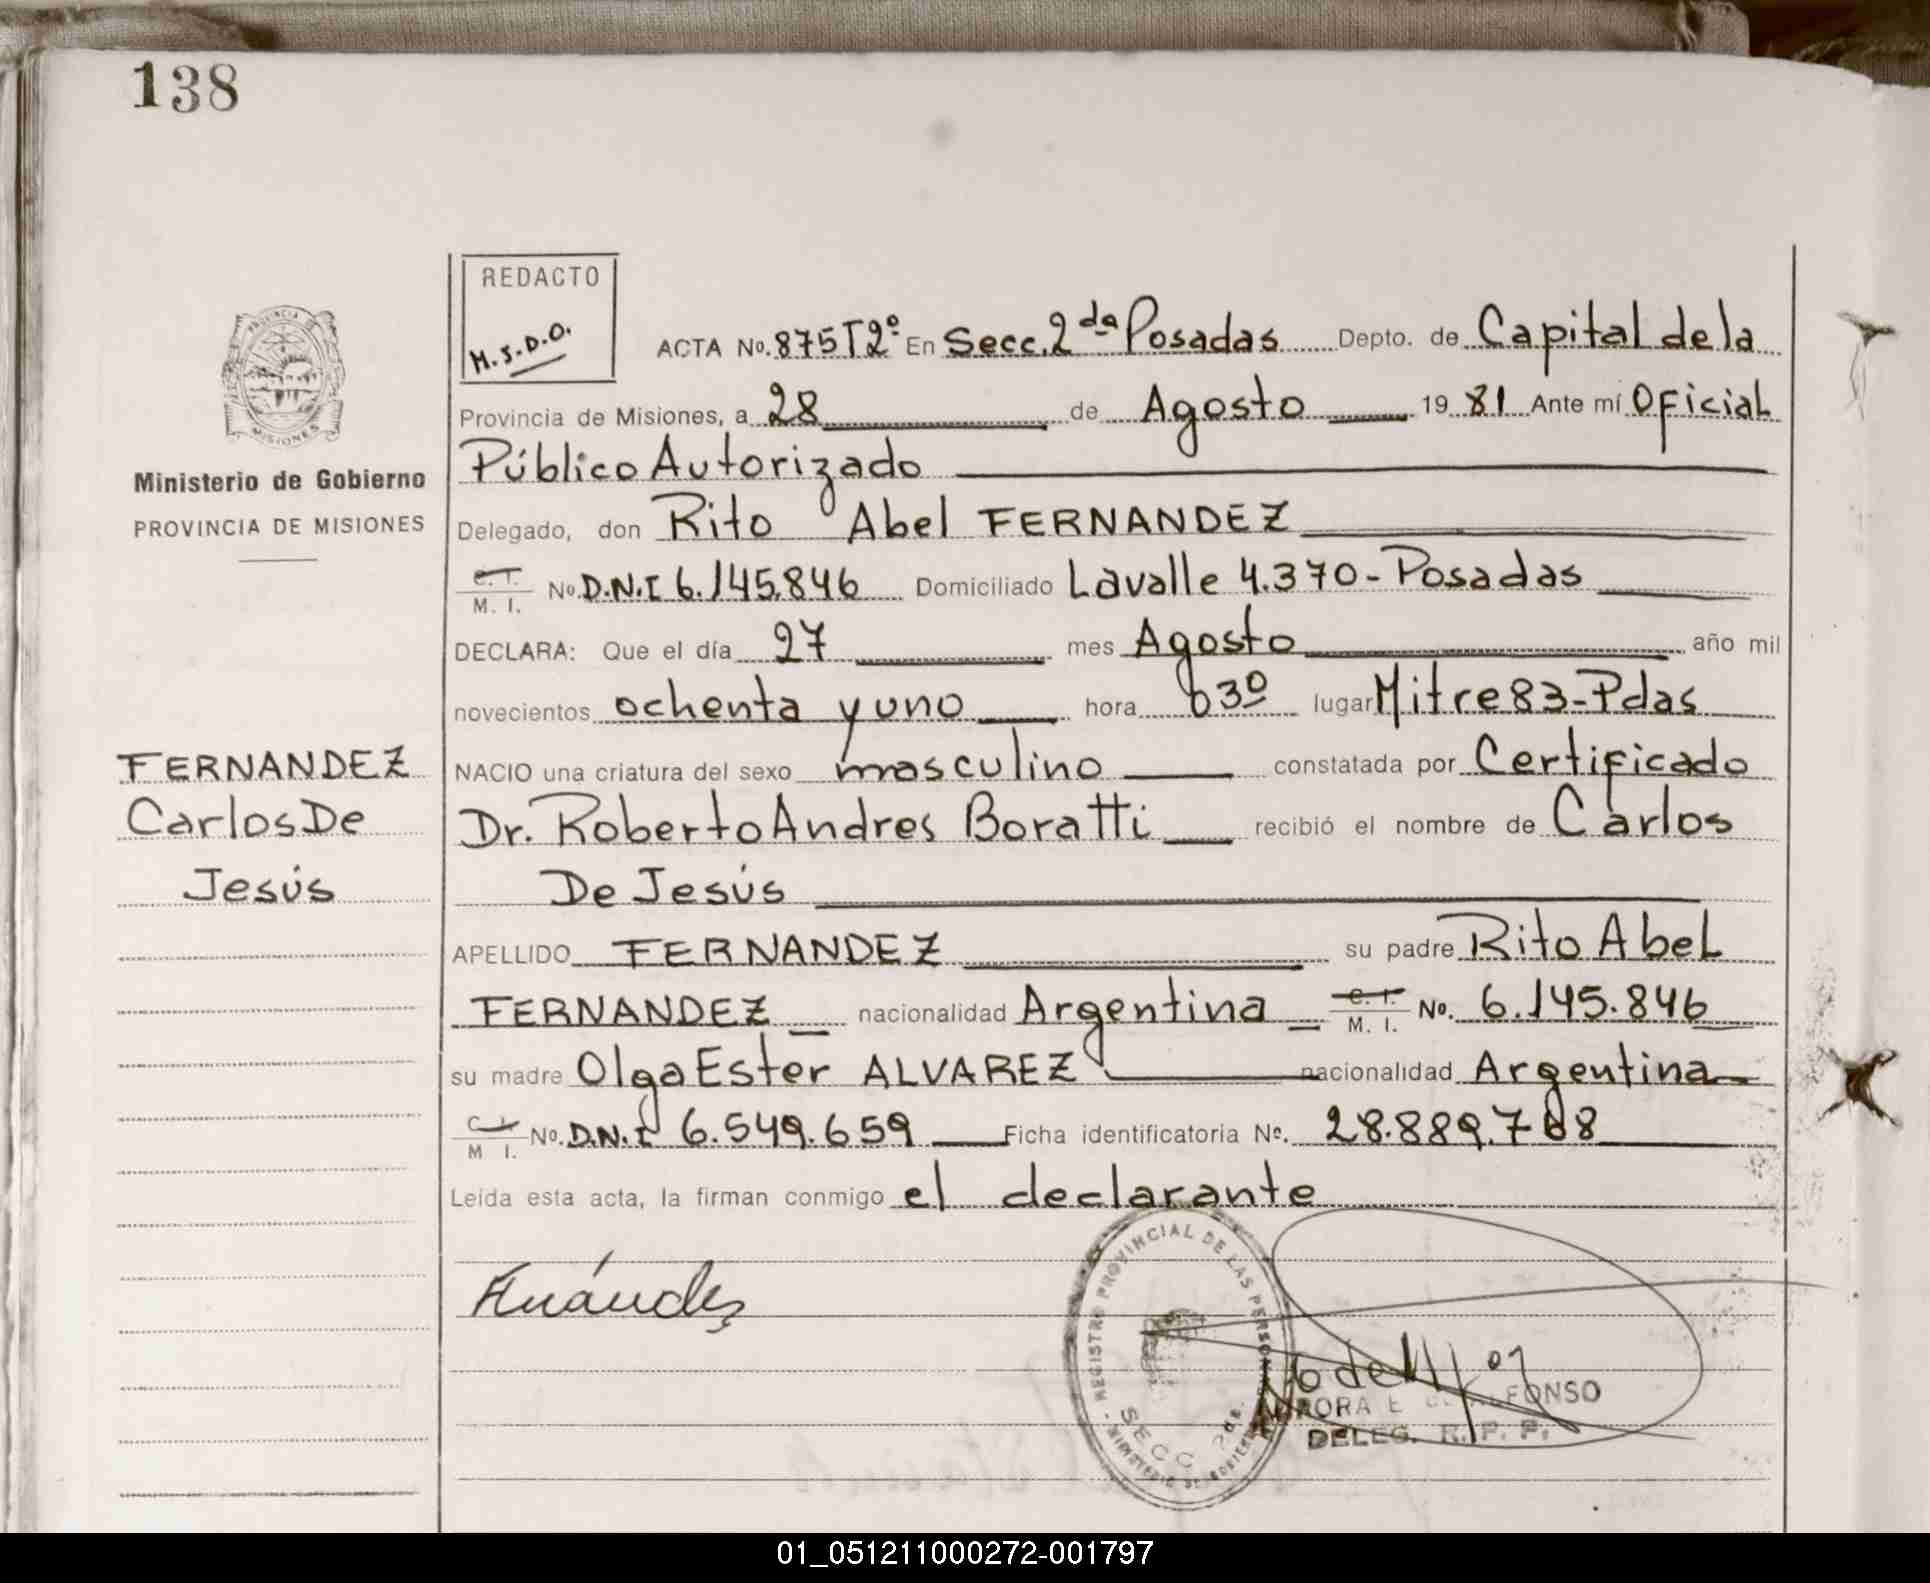 138
REDACTO
M.S.D.O.
ACTA No. 875 T2º En Secc. 2da Posadas Depto. de Capital de la
Provincia de Misiones, a 28 de Agosto 19 81 Ante mí Oficial
Público Autorizado
Delegado, don Rito Abel FERNANDEZ
C. I. M. I. No. D.N.I 6.145.846 Domiciliado Lavalle 4.370 - Posadas
DECLARA: Que el día 27 mes Agosto año mil
novecientos ochenta y uno hora 03º lugar Mitre 83 - Pdas
NACIO una criatura del sexo masculino constatada por Certificado
Dr. Roberto Andres Boratti recibió el nombre de Carlos
De Jesús
APELLIDO FERNANDEZ su padre Rito Abel
FERNANDEZ nacionalidad Argentina C. I. M. I. No. 6.145.846
su madre Olga Ester ALVAREZ nacionalidad Argentina
C. I. M I. No. D.N.I 6.549.659 Ficha identificatoria Nº. 28.889.7
Leída esta acta, la firman conmigo el declarante
PROVINCIA DE
MISIONES
Ministerio de Gobierno
PROVINCIA DE MISIONES
FERNANDEZ
Carlos De
Jesús
REGISTRO PROVINCIAL DE LAS PERSONAS
SECC. 2da.
FONSO
DELEG. R. P. P.
01_051211000272-001797